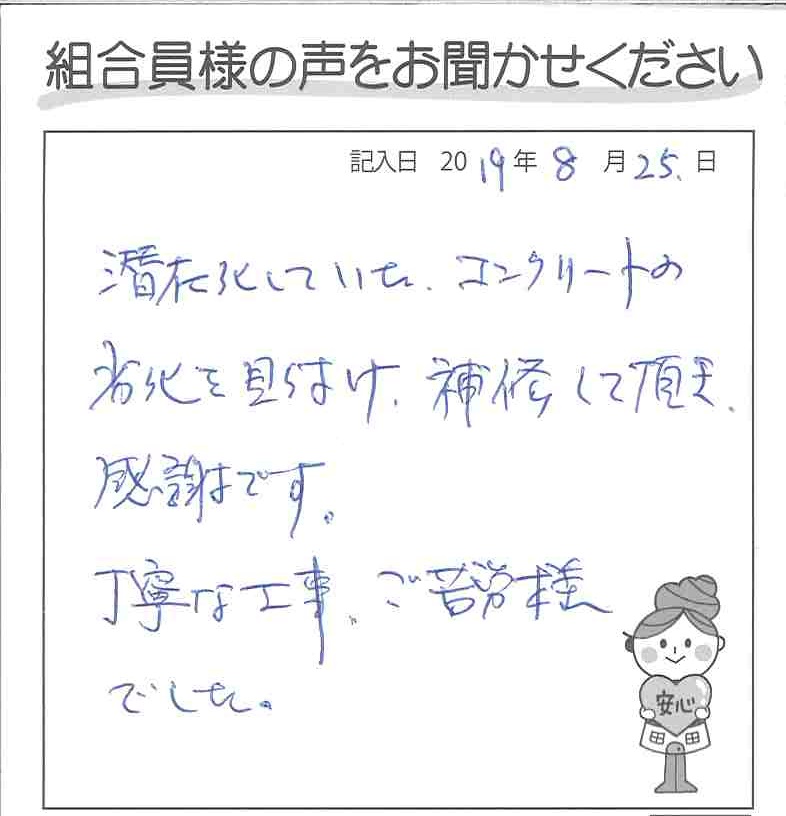 組合員様の声をお聞かせください
記入日 2019年8月25.日
潜在化していた、コンクリートの
劣化を見つけ、補修して頂き、
感謝です。
丁寧な工事、ご苦労様
でした。
安心